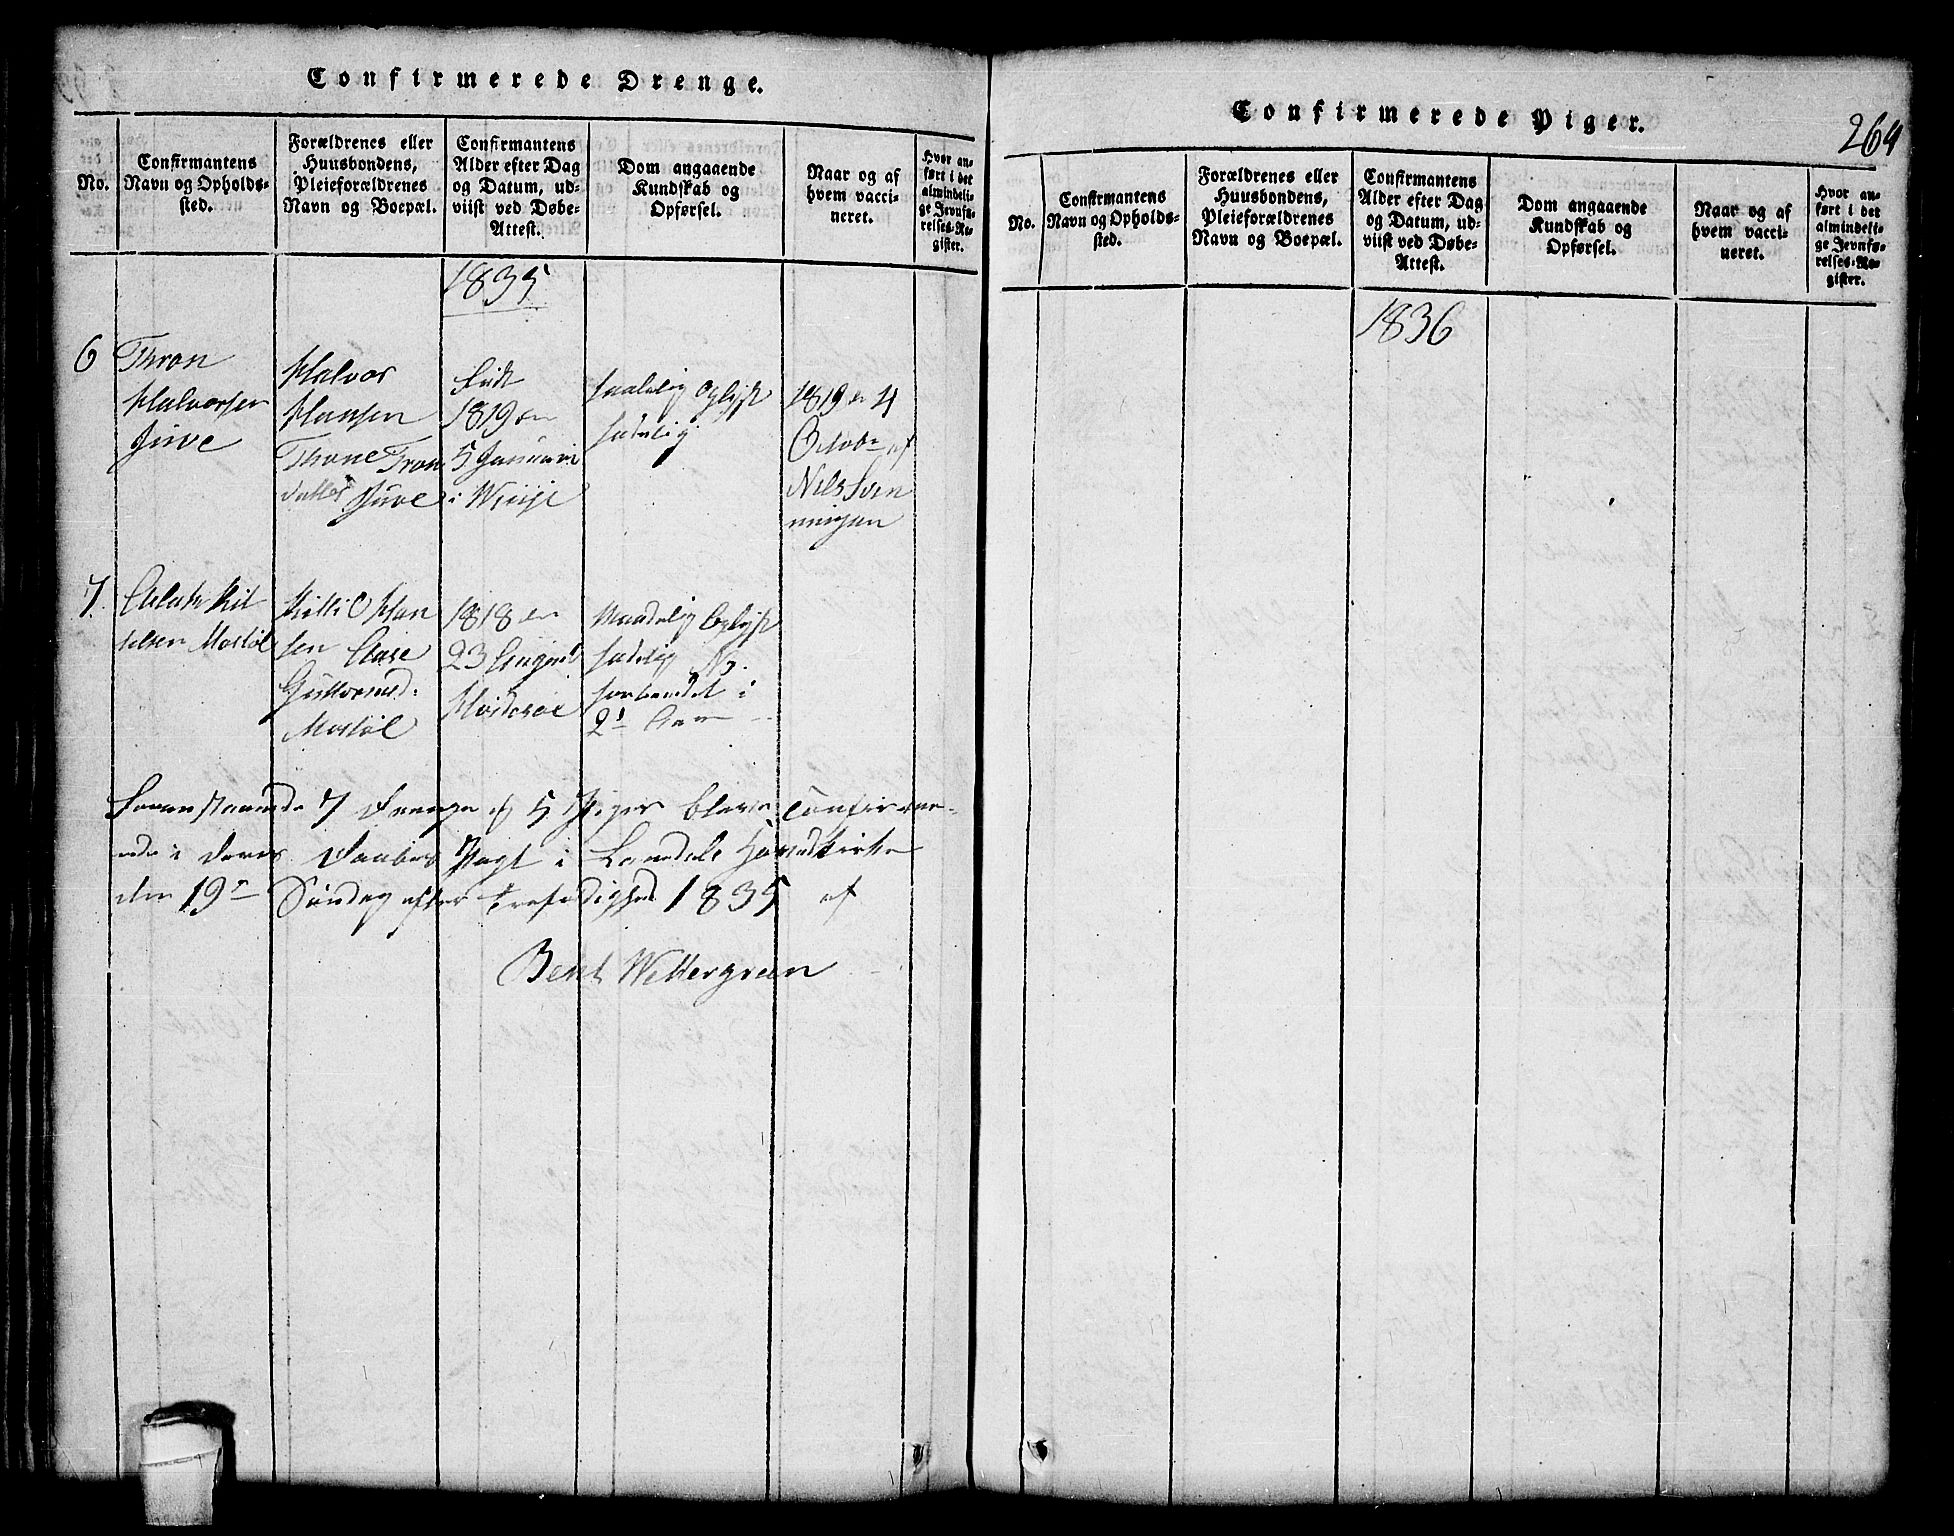 Confirmerede Drenge.
No.
Confirmantens
Navn og Opholds-
sted.
Forældrenes eller
Huusbondens,
Pleieforældrenes
Navn og Boepæl.
Confirmantens
Alder efter Dag
og Datum, ud-
viist ved Døbe-
Attest.
Dom angaaende
Kundskab og
Opførsel.
Naar og af
hvem vacci-
neret.
Hvor an-
ført i det
almindeli-
ge Jevnfø-
relses-Re-
gister.
1835
6
Thron
Halvorsen
Juve
Halvor
Hansen
Thone Tron
datter Juve
Født
1819 en
5 Januari
i Winje
Maadelig Oplyst
sædelig
1819 en 4
Octobr af
Nils Sven
ningsen
7.
Aslak Kit
telsen Mostøl
Kittil Han
sen Aase
Guttormsd.
Mostøl
1818 en
23 August
Hvideseie
Maadelig Oplyst
sædelig
i
Foranstaaende 7 Drenge og 5 Piger bleve confirme-
rede i deres Daabes Pagt i Laurdals Hovedkirke
den 19de Søndag efter Trefoldighed 1835 af
Bent Wettergreen
Confirmerede Piger.
264
No.
Confirmantens
Navn og Opholds-
sted.
Forældrenes eller
Huusbondens,
Pleieforældrenes
Navn og Boepæl.
Confirmantens
Alder efter Dag
og Datum, ud-
viist ved Døbe-
Attest.
Dom angaaende
Kundskab og
Opførsel.
Naar og af
hvem vacci-
neret.
Hvor an-
ført i det
almindeli-
ge Jevnfø-
relses-Re-
gister.
1836